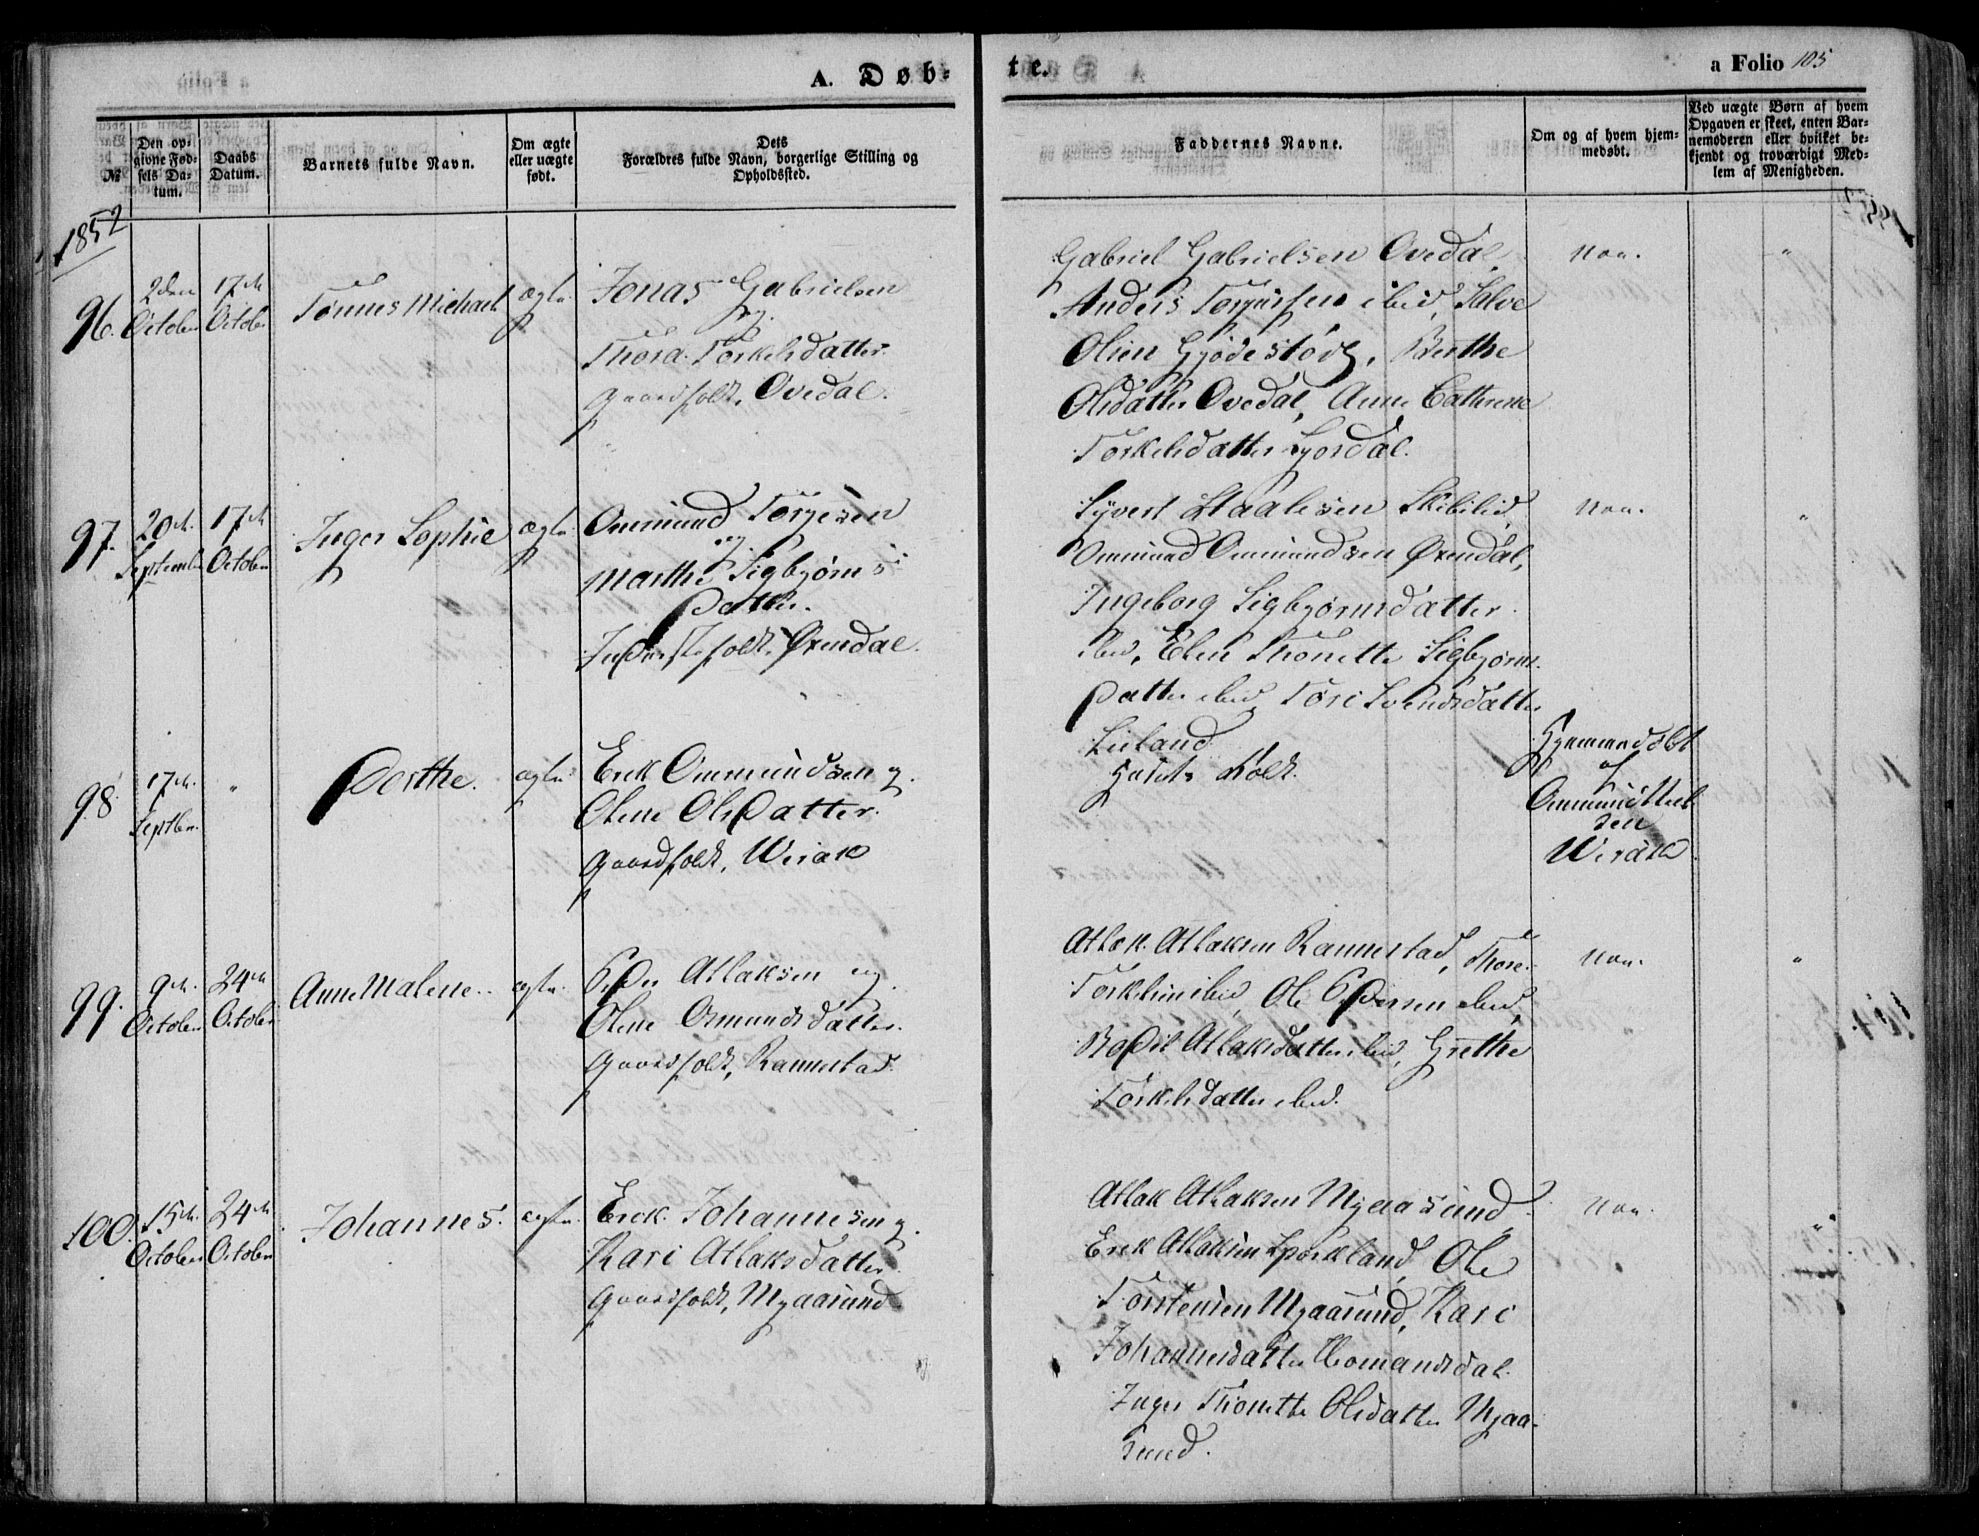 A. Døb-
te.
a Folio 105
№
Den op-
givne Fød-
sels Da-
tum.
Daabs
Datum.
Barnets fulde Navn.
Om ægte
eller uægte
født.
Dets
Forældres fulde Navn, borgerlige Stilling og
Opholdssted.
Faddernes Navne.
Om og af hvem hjem-
medøbt.
Ved uægte Børn af hvem
Opgaven er skeet, enten Bar-
nemoderen eller hvilket be-
kjendt og troværdigt Med-
lem af Menigheden.
1852
96.
2den
October
17de
October
Tønnes Michael
ægte
Jonas Gabrielsen
og
Thora Torkelsdatter
Gaardfolk, Ovedal.
Gabriel Gabrielsen Ovedal,
Anders ibid, Salve
Olsen Gjødestøl, Berthe
Olsdatter Ovedal, Anne Cathrine
Torkelsdatter
Nei.
"
97.
20de
September
17de
October
Inger Sophie
ægte
Ommund Torgersen
og
Marthe Sigbjørns
Datter.
Inderstfolk, Ørendal.
Syvert Staalesen Skibelid
Ommund Ommundsen Ørendal,
Ingeborg Sigbjørnsdatter
ibid, Elen Thonette Sigbjørns
Datter ibid, Tori Svendsdatter
Liland
Nei.
"
98.
17de
Septbr.
"
Dorthe.
ægte
Erik Ommundsen og
Olene Ols Datter.
Gaardfolk, Wirak
Husets Folk.
Hjemmedøbt
af
Ommund
sen
Wirak
99.
9de
October
24de
October
Anne Malene.
ægte.
Peder Atlaksen og
Olene Osmundsdatter.
Gaardfolk, Rannestad.
Atlak Atlaksen Rannestad, Thore
Torkelsen ibid, Ole Pedersen ibid,
Bodil Atlaksdatter ibid, Grethe
Torkelsdatter ibid.
Nei.
"
100.
15de
October
24de
October
Johannes.
ægte.
Erek Johannesen og
Kari Atlaksdatter
Gaardfolk, Mjaasund
Atlak Atlaksen Mjaasund,
Erek Atlaksen Sporkland, Ole
Torstensen Mjaasund, Kari
Johannesdatter Homandsdal.
Inger Thonette Olsdatter Mjaa-
sund.
Nei.
"